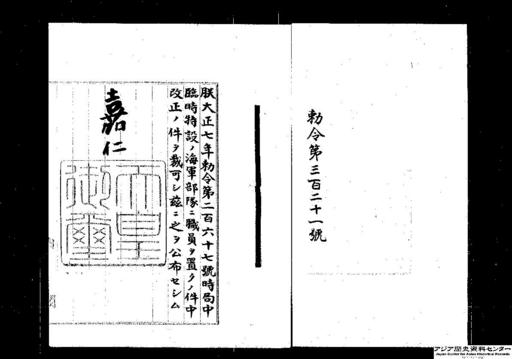 勅令第三百二十一號
朕大正七年勅令第二百六十七號時局中
臨時特設ノ海軍部隊ニ職員ヲ置クノ件中
改正ノ件ヲ裁可シ茲ニ之ヲ公布セシム
嘉仁
天皇
御璽
アジア歴史資料センター
Japan Center for Asian Historical Records